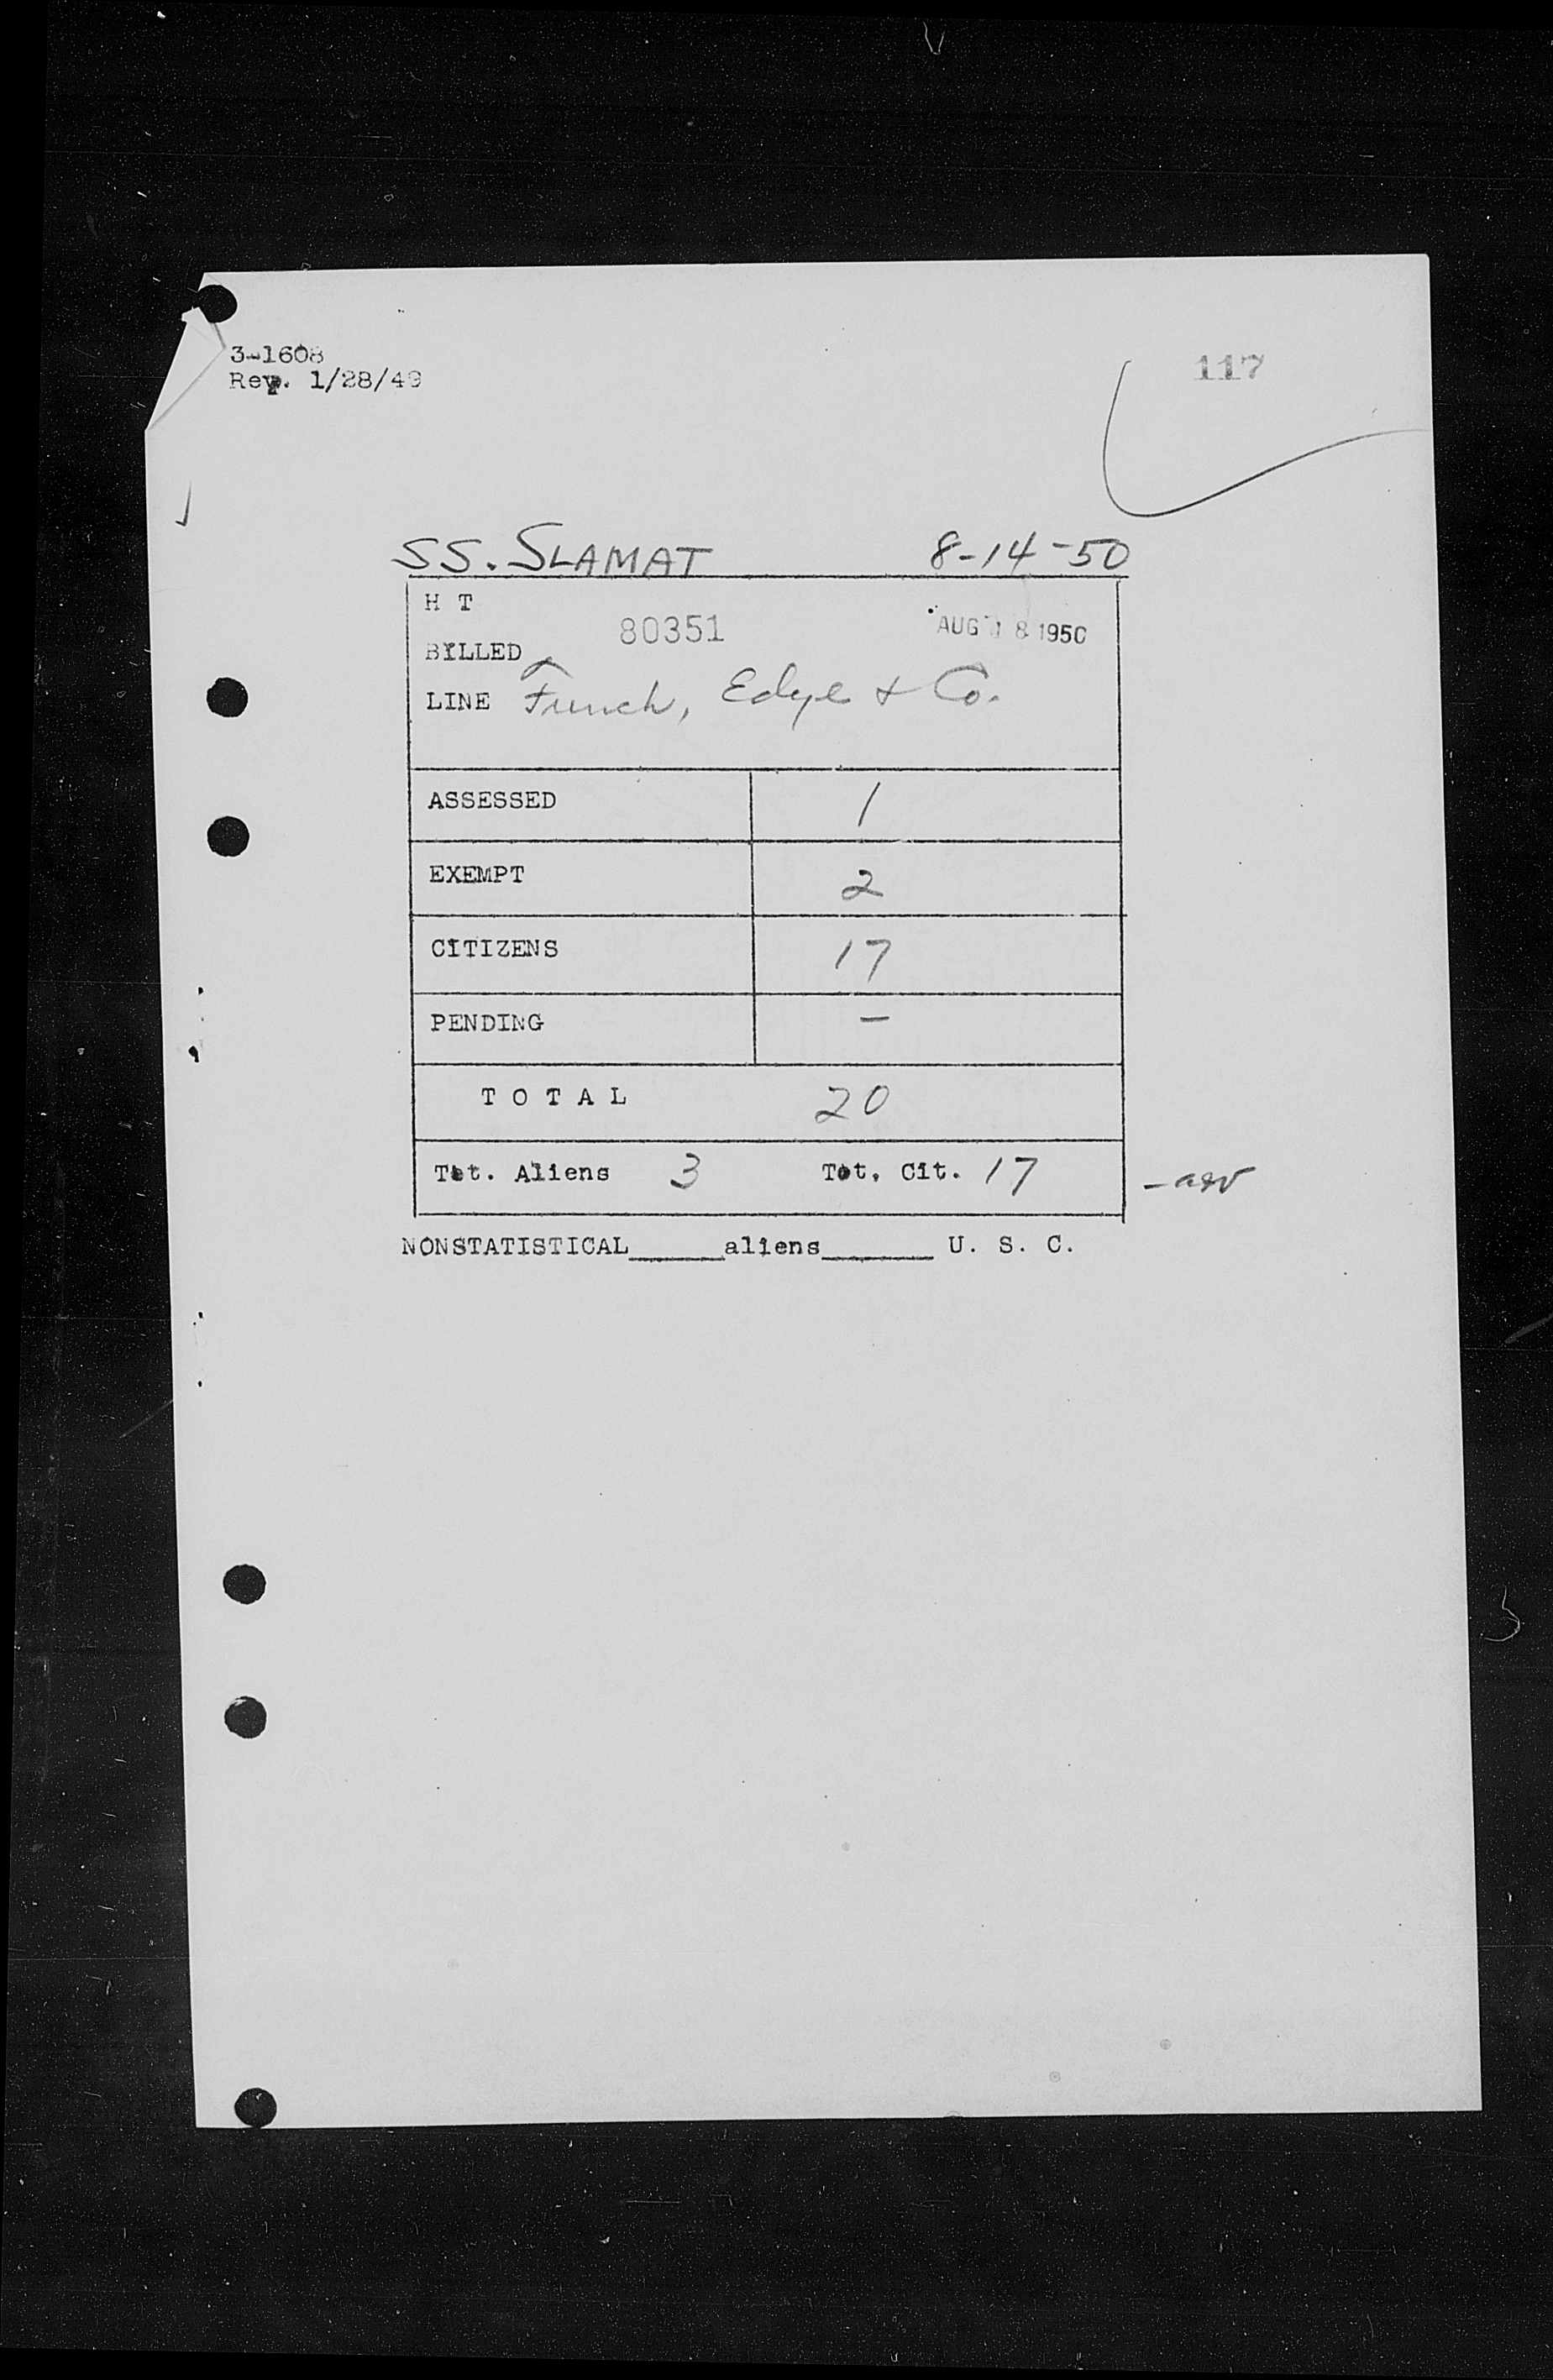 3-1608
Rev. 1/28/49
117
SS. SLAMAT 8-14-50
H T
80351 AUG 18 1950
BILLED
LINE Funch, Edye & Co.
ASSESSED 1
EXEMPT 2
CITIZENS 17
PENDING -
T O T A L 20
Tot. Aliens 3 Tot. Cit. 17
NONSTATISTICAL______aliens_______ U. S. C.